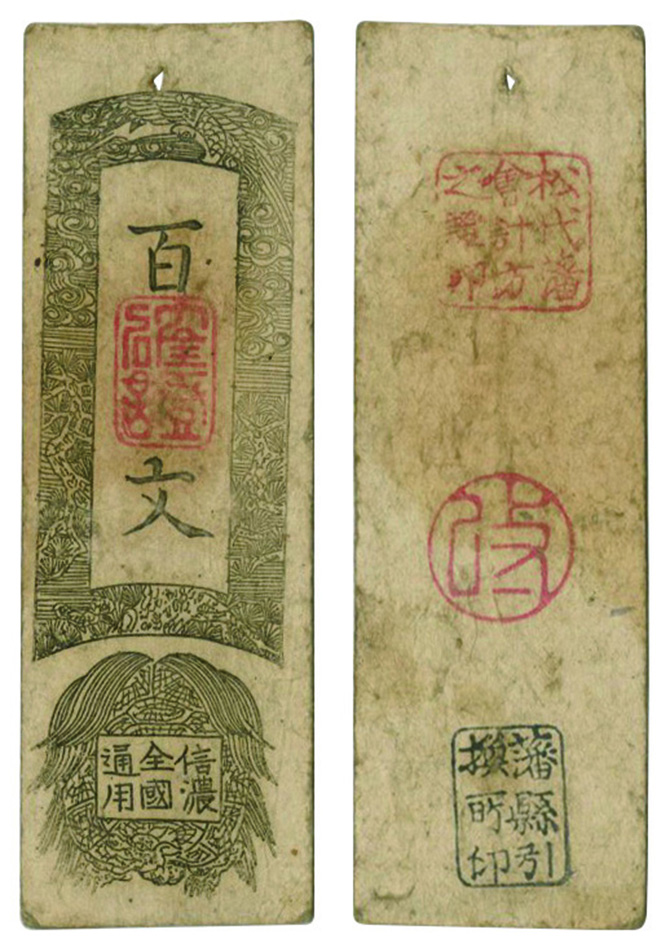 百
確證
文
信濃
全國
通用
松代藩
會計方
之印
改
藩縣引
換所印